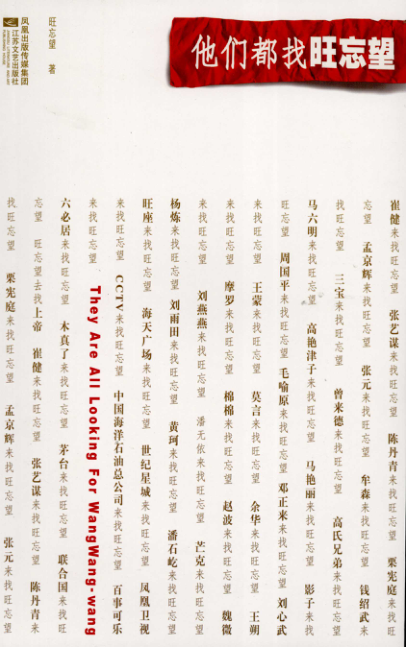 他们都找旺忘望
旺忘望 著
凤凰出版传媒集团
江苏文艺出版社
崔健来找旺忘望 张艺谋来找旺忘望 陈丹青来找旺忘望 栗宪庭来找旺
忘望 孟京辉来找旺忘望 张元来找旺忘望 牟森来找旺忘望 钱绍武来
找旺忘望 三宝来找旺忘望 曾来德来找旺忘望 高氏兄弟来找旺忘望
马六明来找旺忘望 高艳津子来找旺忘望 马艳丽来找旺忘望 影子来找
旺忘望 周国平来找旺忘望 毛喻原来找旺忘望 邓正来来找旺忘望 刘心武
来找旺忘望 王蒙来找旺忘望 莫言来找旺忘望 余华来找旺忘望 王朔
来找旺忘望 摩罗来找旺忘望 棉棉来找旺忘望 赵波来找旺忘望 魏微
来找旺忘望 刘燕燕来找旺忘望 潘无依来找旺忘望 芒克来找旺忘望
杨炼来找旺忘望 刘雨田来找旺忘望 黄珂来找旺忘望 潘石屹来找旺忘望
旺座来找旺忘望 海天广场来找旺忘望 世纪星城来找旺忘望 凤凰卫视
来找旺忘望 CCTV来找旺忘望 中国海洋石油总公司来找旺忘望 百事可乐
来找旺忘望
They Are All Looking For WangWang-wang
六必居来找旺忘望 木真了来找旺忘望 茅台来找旺忘望 联合国来找旺
忘望 旺忘望去找上帝 崔健来找旺忘望 张艺谋来找旺忘望 陈丹青来
找旺忘望 栗宪庭来找旺忘望 孟京辉来找旺忘望 张元来找旺忘望